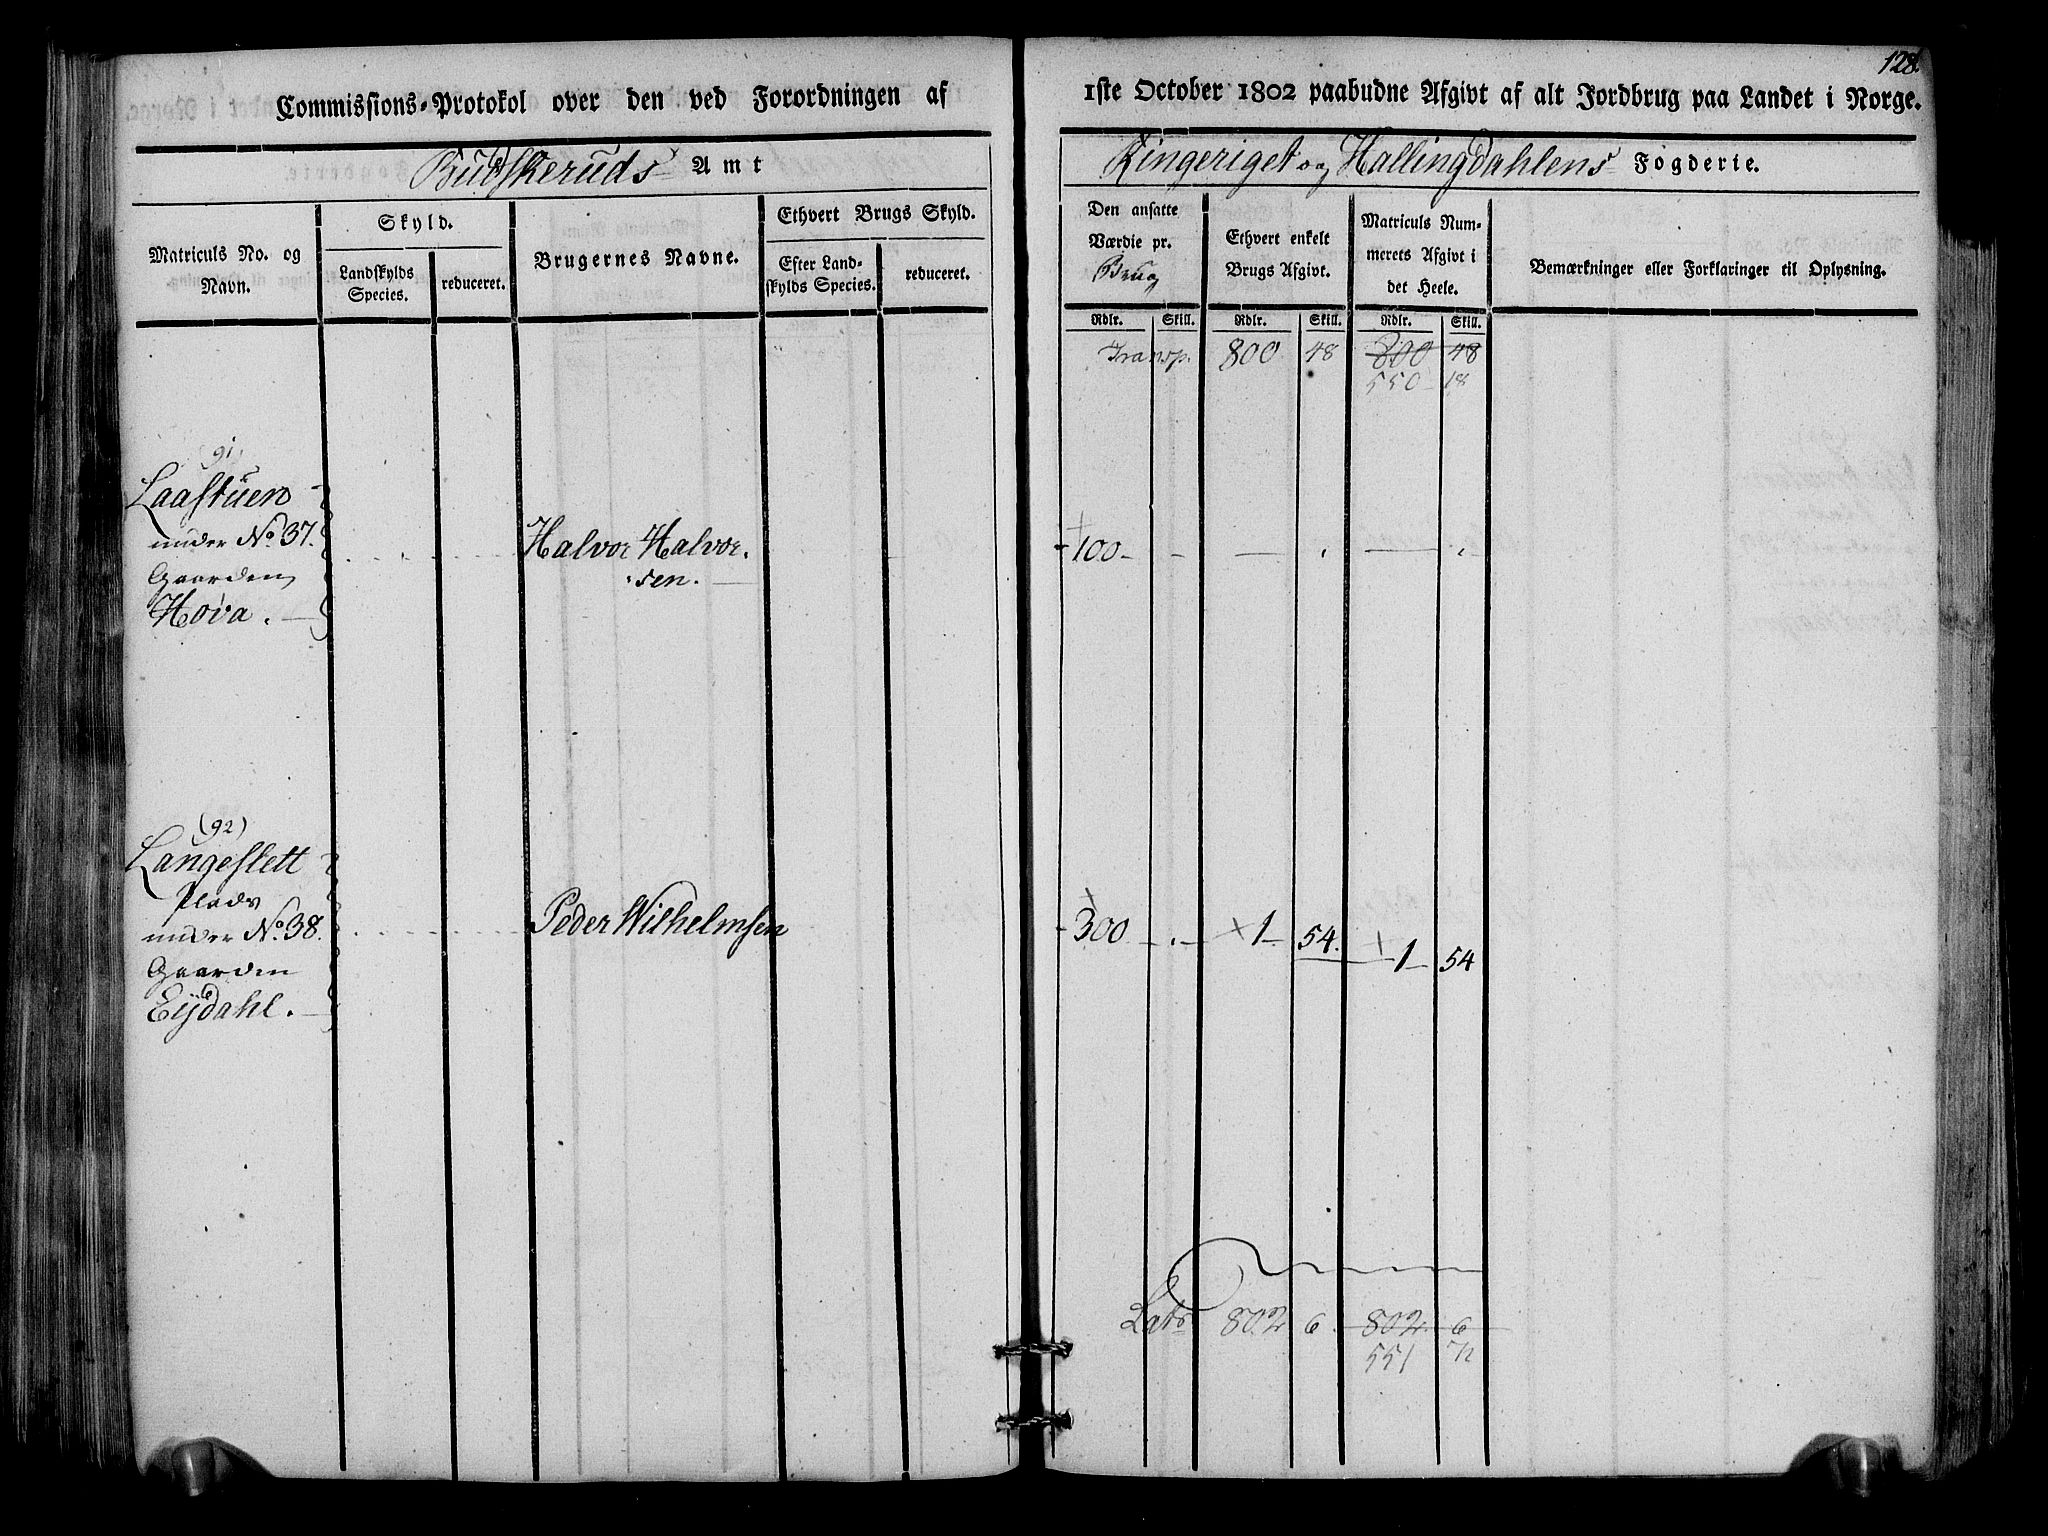 128.
Commissions-Protokol over den ved Forordningen af 1ste October 1802 paabudne Afgivt af alt Jordbrug paa Landet i Norge.
Budskeruds Amt
Ringeriget og Hallingdahlens Fogderie.
Matriculs No. og Navn.
Skyld.
Landskylds Species.
reduceret.
Brugernes Navne.
Ethvert Brugs Skyld.
Efter Landskylds Species.
reduceret.
Den ansatte Værdie pr. Brug
Ethvert enkelt Brugs Afgivt.
Matriculs Nummerets Afgivt i det Heele.
Bemærkninger eller Forklaringer til Oplysning.
Rdlr. Skill. Rdlr. Skill. Rdlr. Skill.
Transp. 800 48 800 48
550 18
(91)
Laastuen
under No. 37.
Gaarden
Hova.
Halvor Halvor-
sen.
100
(92)
Langeslett
Plads
under No. 38.
Gaarden
Eydahl.
Peder Wilhelmsen
300 1 54. 1 54
Lats 802 6 802 6
551 72